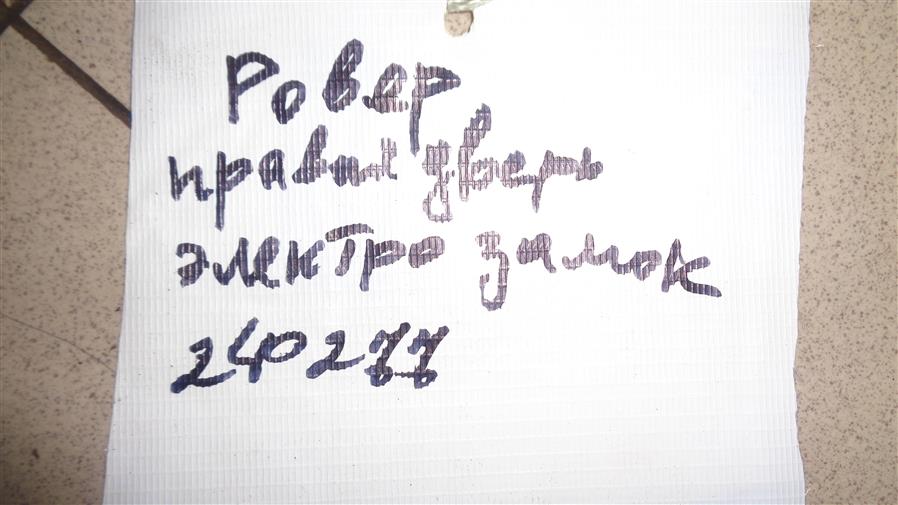 Ровер
правая дверь
электро замок
240277